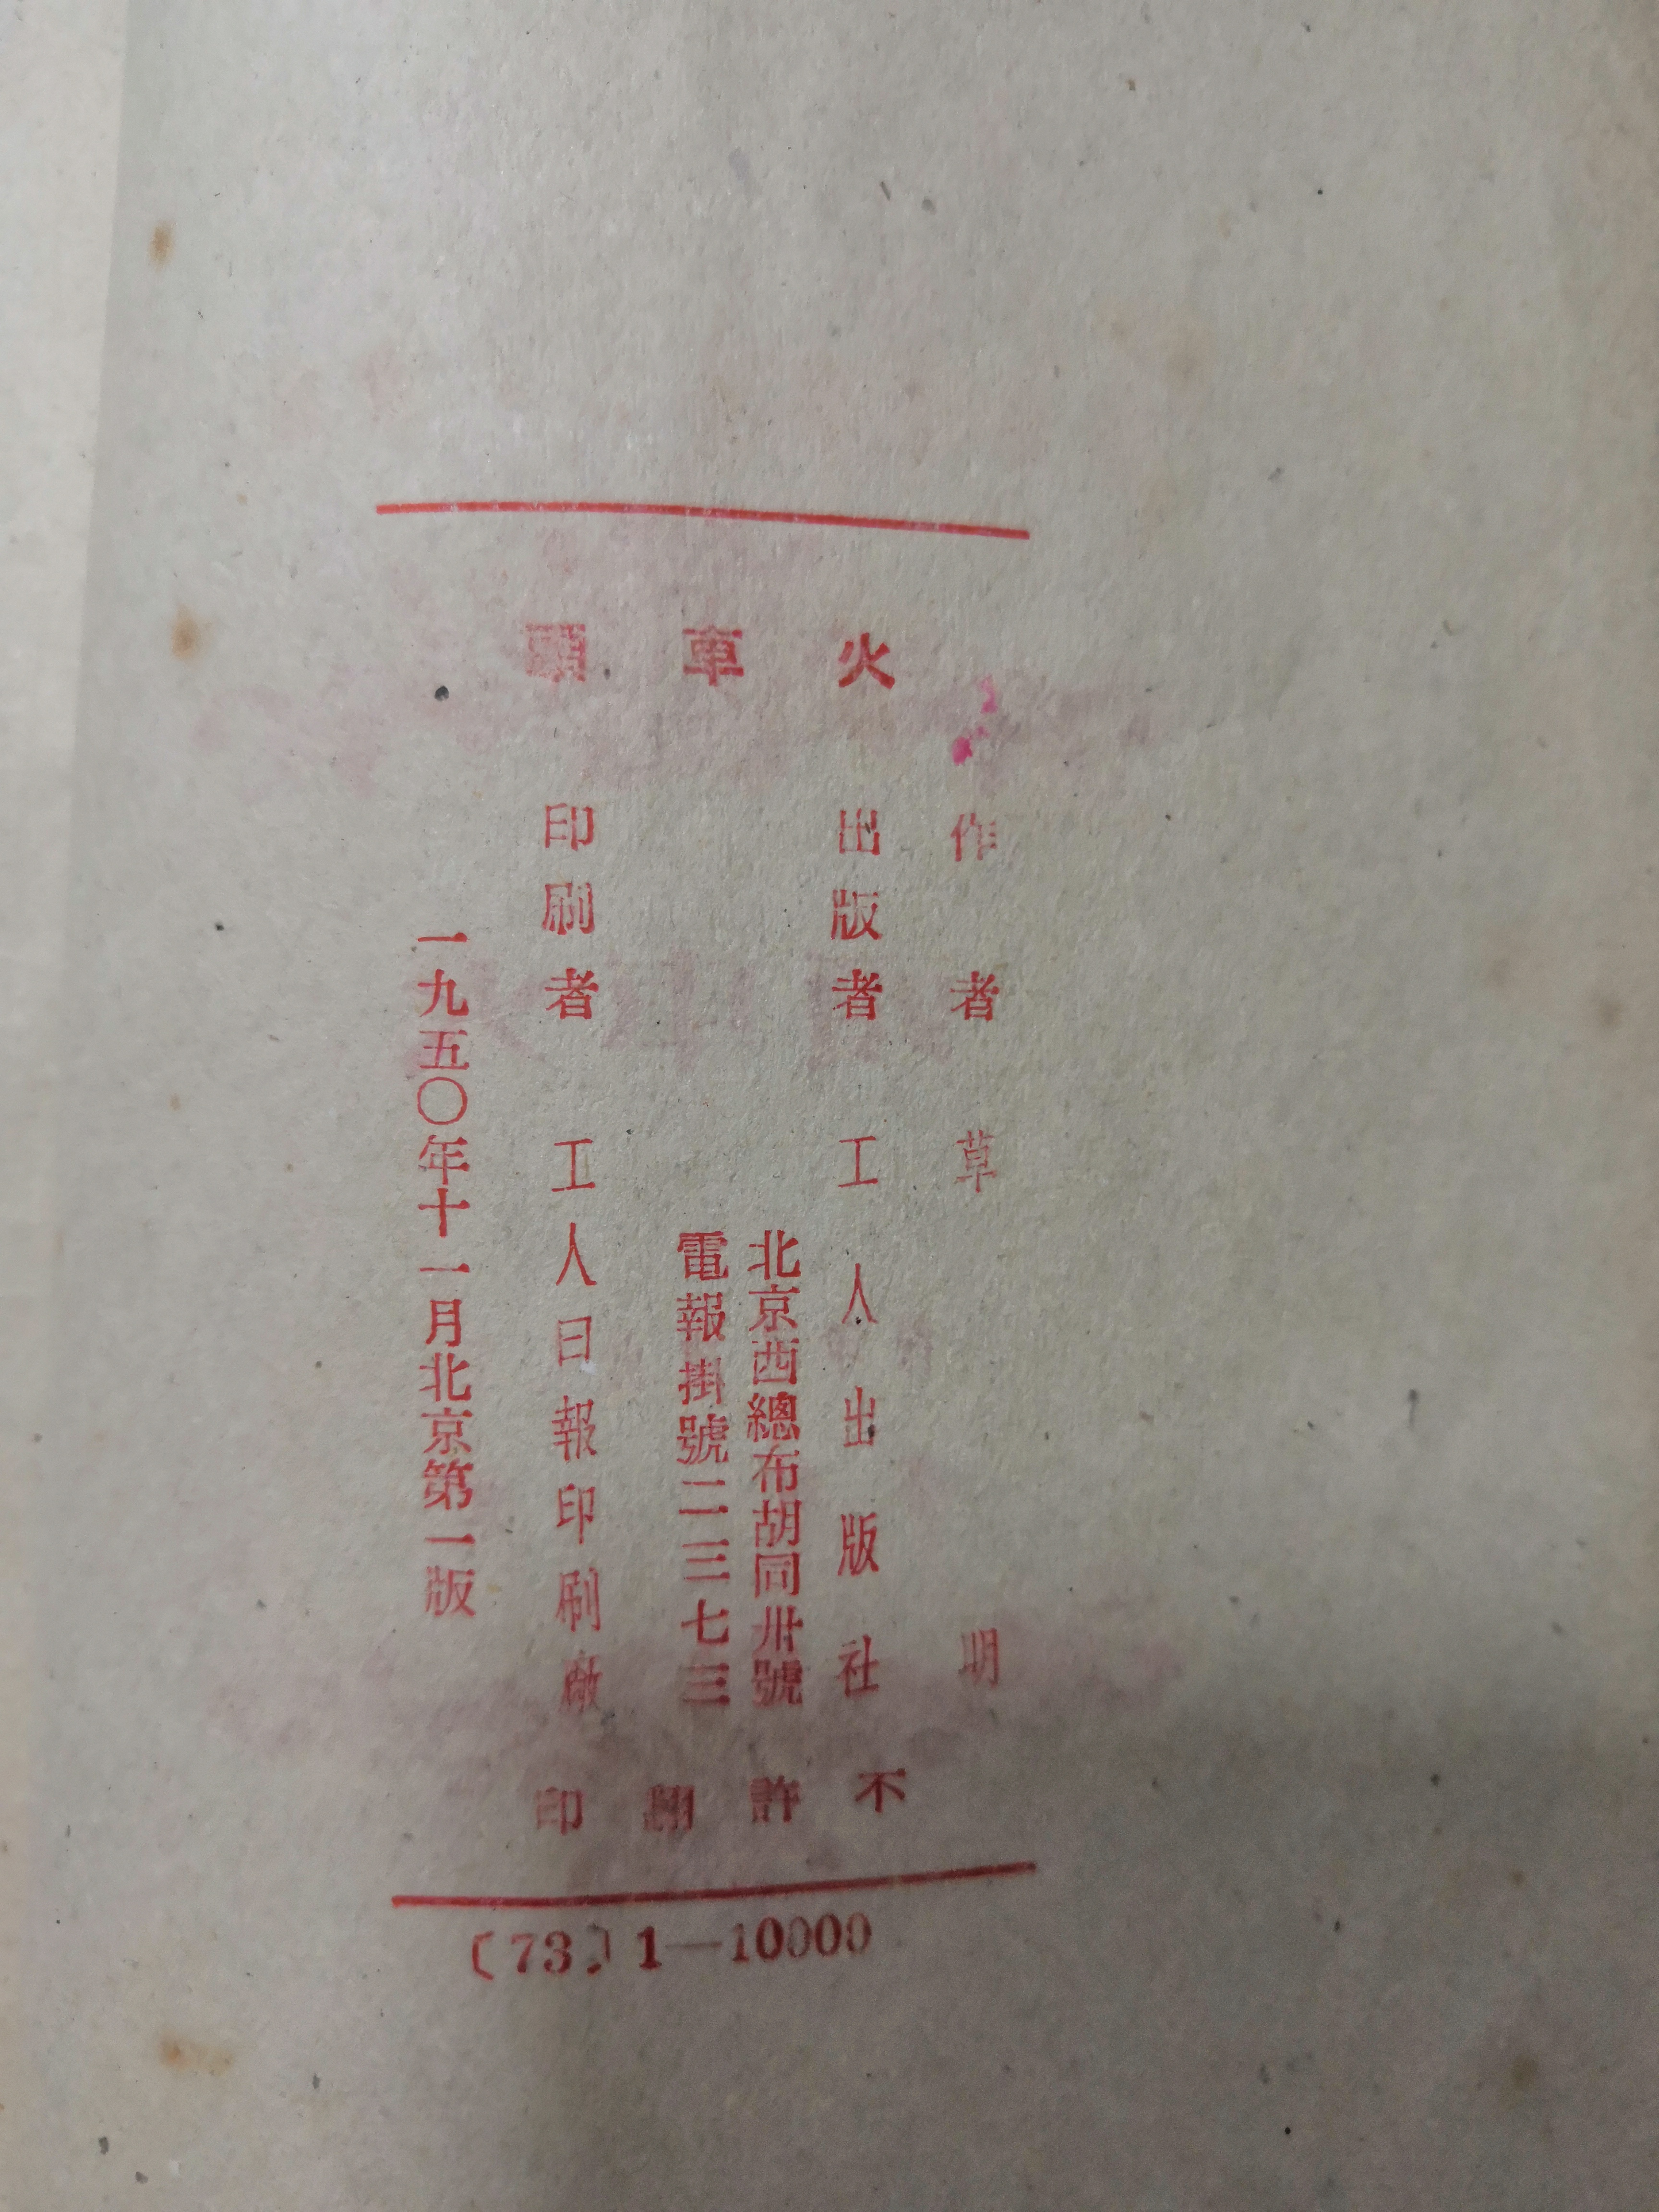 火車頭
作者 草明
出版者 工人出版社
北京西總布胡同卅號
電報掛號二三七三
印刷者 工人日報印刷廠
一九五〇年十一月北京第一版
不許翻印
〔73〕1—10000